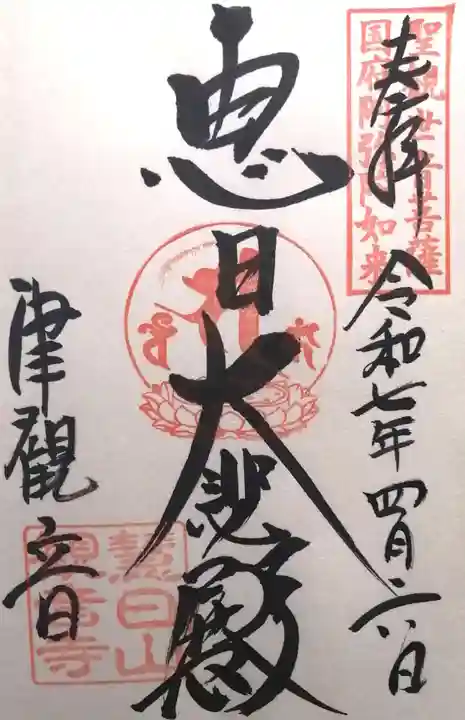 奉拝
令和七年四月二八日
聖観世音菩薩
国府阿弥陀如来
恵日
大悲殿
津觀音
慧日山
観音寺